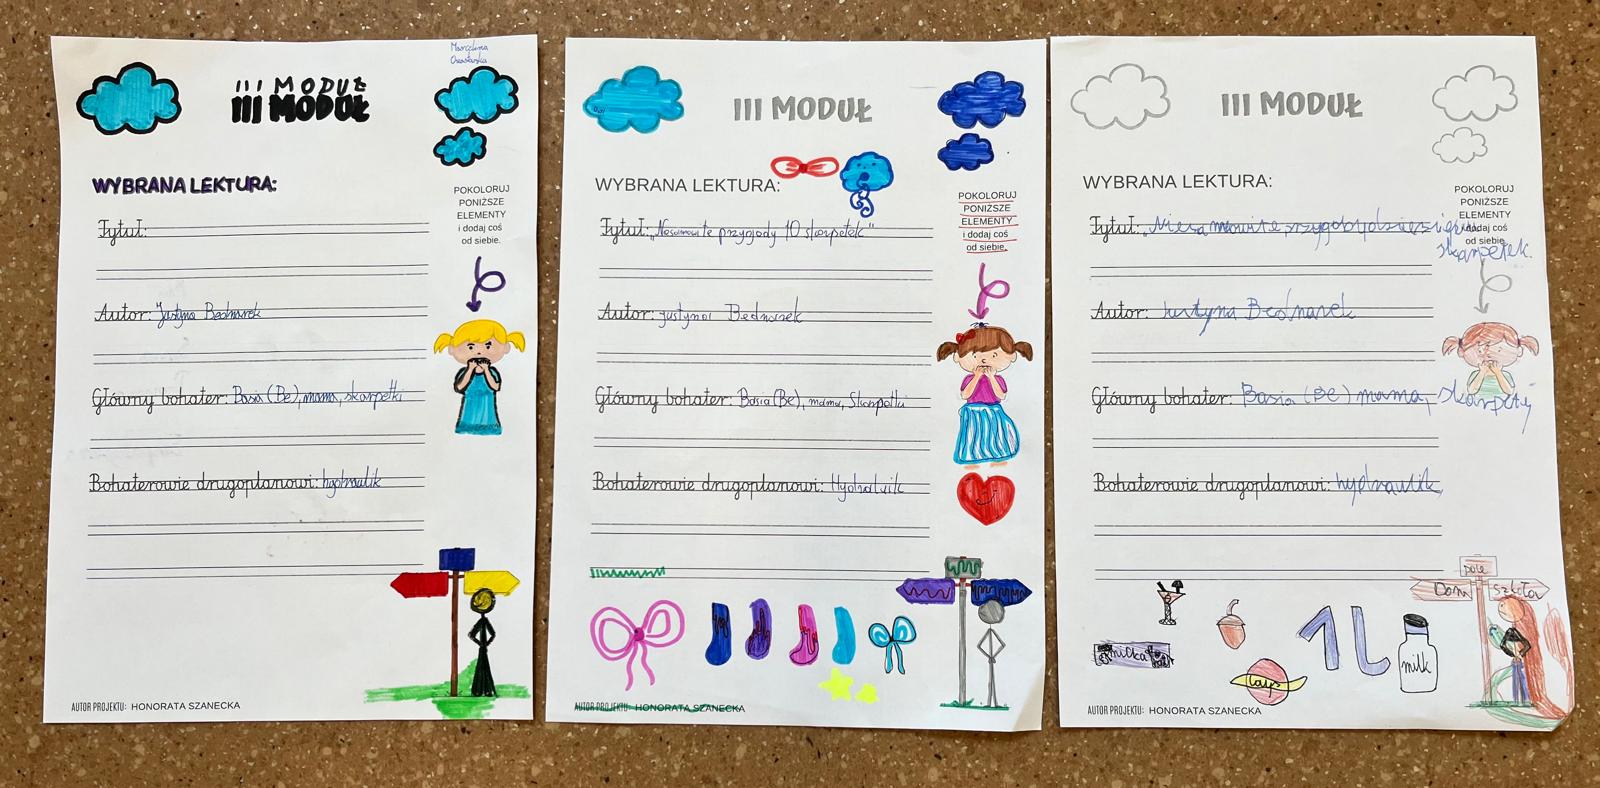 Marcelina
III MODUŁ
III MODUŁ
WYBRANA LEKTURA:
POKOLORUJ
PONIŻSZE
ELEMENTY
i dodaj coś
od siebie.
Tytuł:
Autor: Justyna Bednarek
Główny bohater: Basia (Be), mama, skarpetki
Bohaterowie drugoplanowi: hydraulik
AUTOR PROJEKTU: HONORATA SZANECKA
III MODUŁ
WYBRANA LEKTURA:
POKOLORUJ
PONIŻSZE
ELEMENTY
i dodaj coś
od siebie.
Tytuł: „ przygody 10 skarpetek"
Autor: justyna Bednarek
Główny bohater: Basia (Be), mama, Skarpetki
Bohaterowie drugoplanowi: Hydraluik
AUTOR PROJEKTU: HONORATA SZANECKA
III MODUŁ
WYBRANA LEKTURA:
POKOLORUJ
PONIŻSZE
ELEMENTY
i dodaj coś
od siebie.
Tytuł: „
skarpetek.
Autor: Justyna Bednarek
Główny bohater: Basia (Be) mama,
Bohaterowie drugoplanowi: hydraulik,
pole
Dom
szkoła
milka
milk
AUTOR PROJEKTU: HONORATA SZANECKA